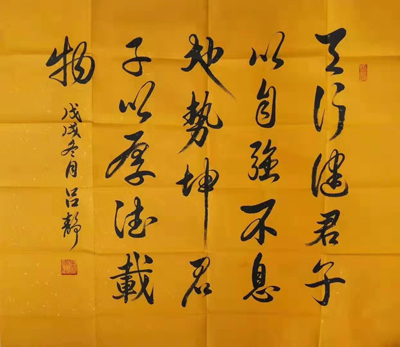 天行健君子
以自强不息
地势坤君
子以厚德載
物
戊戌冬月吕静